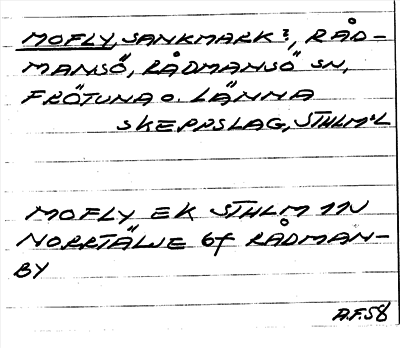 MOFLY, SANKMARK?, RÅD-
MANSÖ, RÅDMANSÖ SN,
FRÖTUNA O. LÄNNA
SKEPPSLAG, STHLM:L
MOFLY EK STHLM 11N
NORRTÄLJE 6f RÅDMAN-
BY
A.F.58